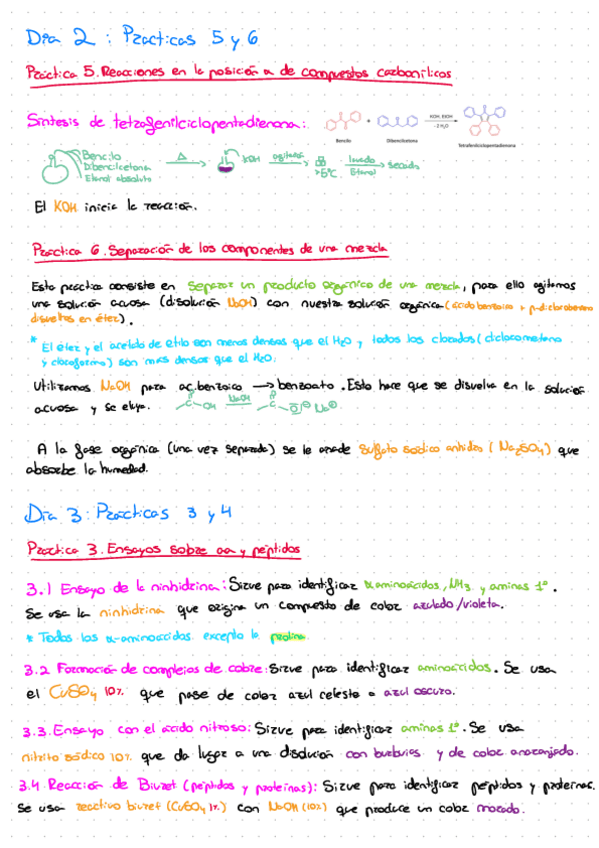 Día 2: Prácticas 5 y 6
Práctica 5. Reacciones en la posición α de compuestos carbonílicos
Síntesis de tetrafenilciclopentadienona:
Bencilo + Dibencilcetona KOH, EtOH - 2 H₂O Tetrafenilciclopentadienona
Bencilo
Dibencilcetona
Etanol absoluto
Δ KOH agitador >5ºC lavado Etanol secado
El KOH inicia la reacción.
Práctica 6. Separación de los componentes de una mezcla
Esta práctica consiste en separar un producto orgánico de una mezcla, para ello agitamos
una solución acuosa (disolución NaOH) con nuestra solución orgánica (ácido benzoico + p-diclorobenceno
disueltos en éter).
* El éter y el acetato de etilo son menos densos que el H₂O y todos los clorados (diclorometano
y cloroformo) son más densos que el H₂O.
Utilizamos NaOH para ac. benzoico → benzoato. Esto hace que se disuelva en la solución
acuosa y se eluya. C O OH NaOH C O O⊖ Na⊕
A la fase orgánica (una vez separada) se le añade sulfato sódico anhidro (Na₂SO₄) que
absorbe la humedad.
Día 3: Prácticas 3 y 4
Práctica 3. Ensayos sobre aa y péptidos
3.1 Ensayo de la ninhidrina: Sirve para identificar α aminoácidos, NH₃ y aminas 1º.
Se usa la ninhidrina que origina un compuesto de color azulado/violeta.
* Todos los α-aminoácidos excepto la prolina
3.2 Formación de complejos de cobre: Sirve para identificar aminoácidos. Se usa
el CuSO₄ 10% que pasa de color azul celeste a azul oscuro.
3.3. Ensayo con el ácido nitroso: Sirve para identificar aminas 1º. Se usa
nitrito sódico 10% que da lugar a una disolución con burbujas y de color anaranjado.
3.4 Reacción de Biuret (péptidos y proteínas): Sirve para identificar péptidos y proteínas.
Se usa reactivo biuret (CuSO₄ 1%) con NaOH (10%) que produce un color morado.